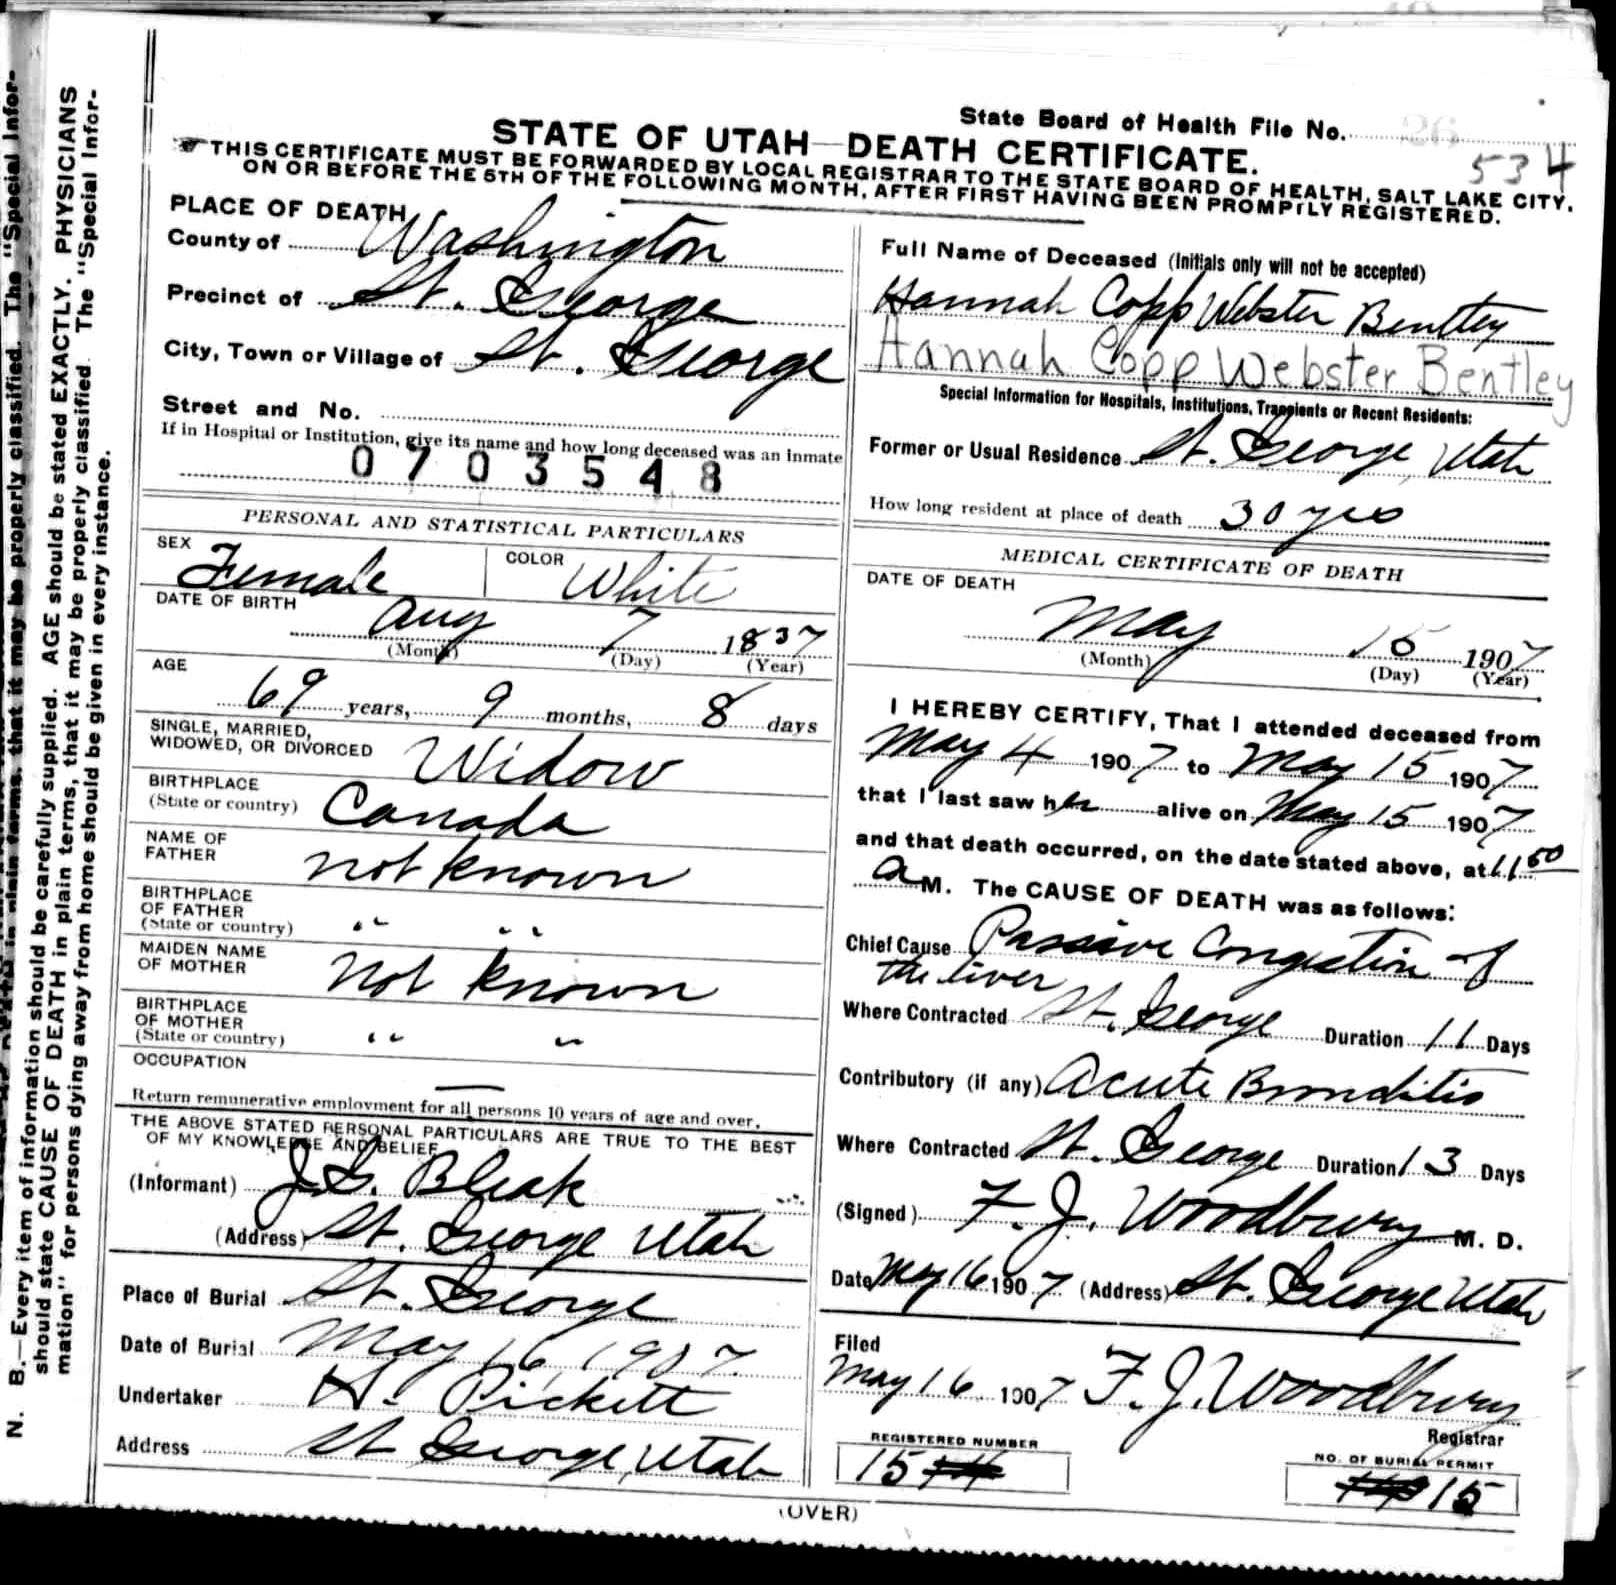 State Board of Health File No. 26
534
STATE OF UTAH—DEATH CERTIFICATE.
THIS CERTIFICATE MUST BE FORWARDED BY LOCAL REGISTRAR TO THE STATE BOARD OF HEALTH, SALT LAKE CITY,
ON OR BEFORE THE 5TH OF THE FOLLOWING MONTH, AFTER FIRST HAVING BEEN PROMPTLY REGISTERED.
PLACE OF DEATH
County of Washington
Precinct of St. George
City, Town or Village of St. George
Street and No.
If in Hospital or Institution, give its name and how long deceased was an inmate
0703548
PERSONAL AND STATISTICAL PARTICULARS
SEX Female COLOR White
DATE OF BIRTH Aug 7 1837
(Month) (Day) (Year)
AGE
69 years, 9 months, 8 days
SINGLE, MARRIED,
WIDOWED, OR DIVORCED Widow
BIRTHPLACE
(State or country) Canada
NAME OF
FATHER not known
BIRTHPLACE
OF FATHER
(State or country) " "
MAIDEN NAME
OF MOTHER Not known
BIRTHPLACE
OF MOTHER
(State or country) " "
OCCUPATION —
Return remunerative employment for all persons 10 years of age and over.
THE ABOVE STATED PERSONAL PARTICULARS ARE TRUE TO THE BEST
OF MY KNOWLEDGE AND BELIEF
(Informant) J. G. Bleak
(Address) St. George Utah
Place of Burial St. George
Date of Burial May 16, 1907.
Undertaker H. Pickett
Address St George, Utah
Full Name of Deceased (Initials only will not be accepted)
Hannah Copp Webster Bentley
Hannah Copp Webster Bentley
Special Information for Hospitals, Institutions, Transients or Recent Residents:
Former or Usual Residence St. George, Utah
How long resident at place of death 30 yrs
MEDICAL CERTIFICATE OF DEATH
DATE OF DEATH
May 15 1907
(Month) (Day) (Year)
I HEREBY CERTIFY, That I attended deceased from
May 4 1907 to May 15 1907
that I last saw her alive on May 15 1907
and that death occurred, on the date stated above, at 11 50
a M. The CAUSE OF DEATH was as follows:
Chief Cause Passive Congestion of
the liver
Where Contracted St. George Duration 11 Days
Contributory (if any) Acute Bronchitis
Where Contracted St. George Duration 13 Days
(Signed) F. J. Woodbury M. D.
Date May 16 1907 (Address) St. George Utah
Filed
May 16 1907 F. J. Woodbury
Registrar
REGISTERED NUMBER
15
NO. OF BURIAL PERMIT
15
(OVER)
N. B.—Every item of information should be carefully supplied. AGE should be stated EXACTLY. PHYSICIANS
should state CAUSE OF DEATH in plain terms, that it may be properly classified. The "Special Infor-
mation" for persons dying away from home should be given in every instance.